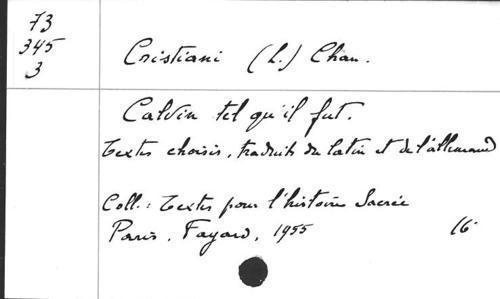 73
345
3
Cristiani (L.) Chan.
Calvin tel qu'il fut.
Textes choisis, traduits du latin et de l'allemand
Coll.: Textes pour l'histoire Sacrée
Paris, Fayard, 1955 16°